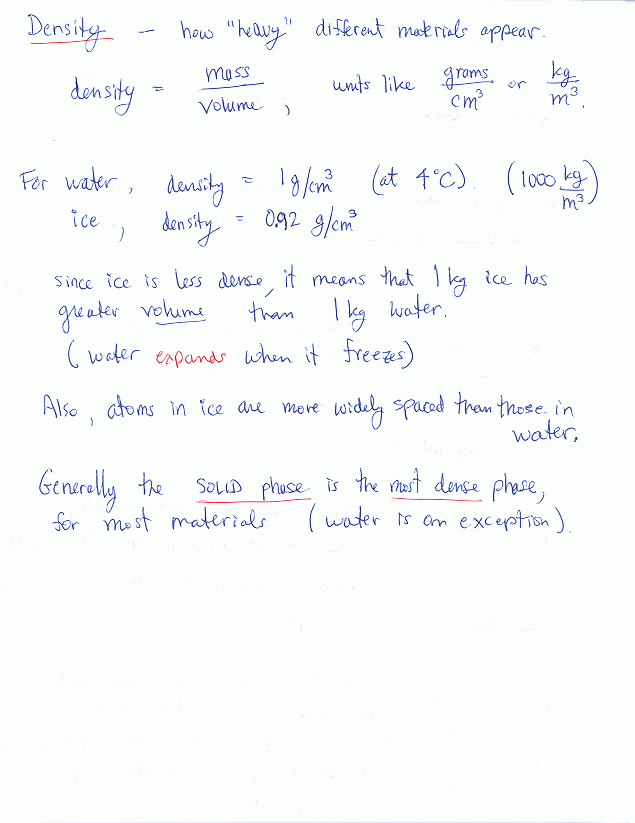 Density — how "heavy" different materials appear.
density = mass / volume, units like grams / cm³ or kg / m³.
For water, density = 1 g/cm³ (at 4°C). (1000 kg / m³)
ice, density = 0.92 g/cm³
since ice is less dense, it means that 1 kg ice has
greater volume than 1 kg water.
(water expands when it freezes)
Also, atoms in ice are more widely spaced than those in
water.
Generally the SOLID phase is the most dense phase,
for most materials (water is an exception).